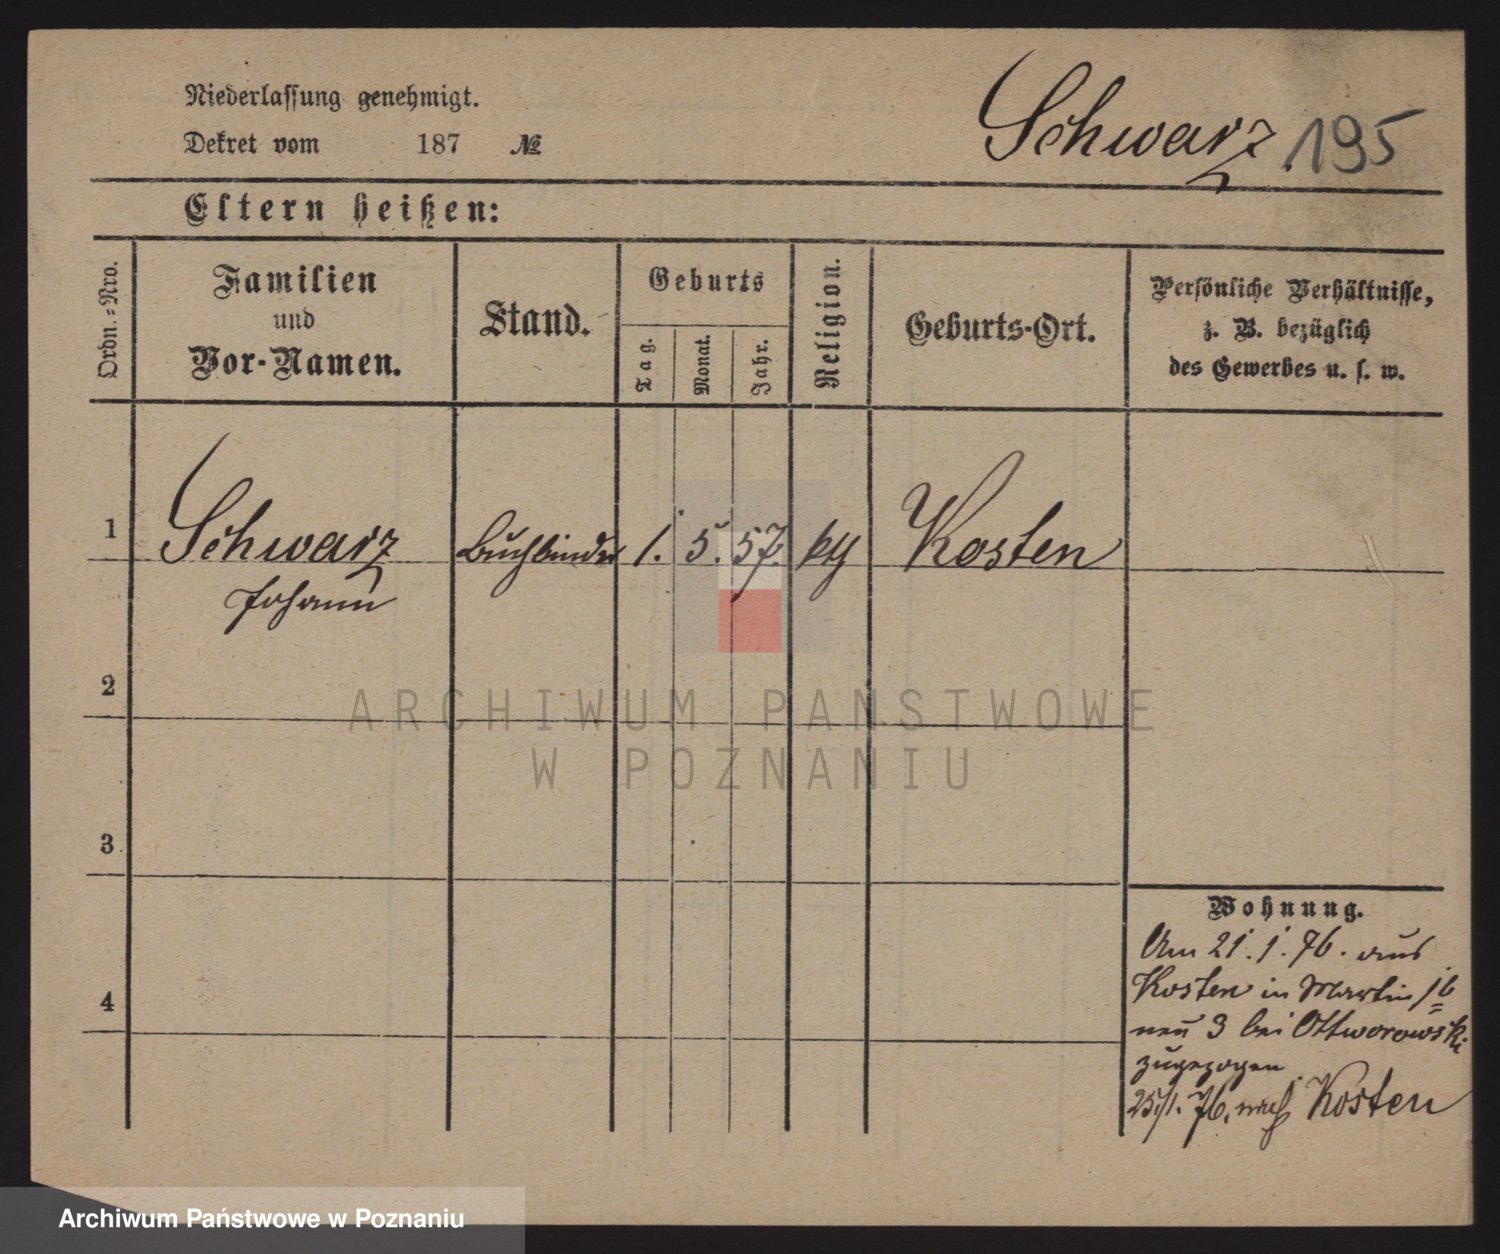 Niederlassung genehmigt.
Dekret vom 187 №
Schwarz 195
Eltern heißen:
Ordn.-Nro.
Familien
und
Vor-Namen.
Stand.
Geburts
Tag.
Monat.
Jahr.
Religion.
Geburts-Ort.
Persönliche Verhältnisse,
z. B. bezüglich
des Gewerbes u. s. w.
1 Schwarz Buchbinder 1. 5. 57. kth Kosten
Johann
2
3
4
Wohnung.
Am 21. 1. 76. aus
Kosten in Martin 16
neu 3 bei Ottworowski
zugezogen
25/1. 76. nach Kosten
ARCHIWUM PAŃSTWOWE
W POZNANIU
Archiwum Państwowe w Poznaniu